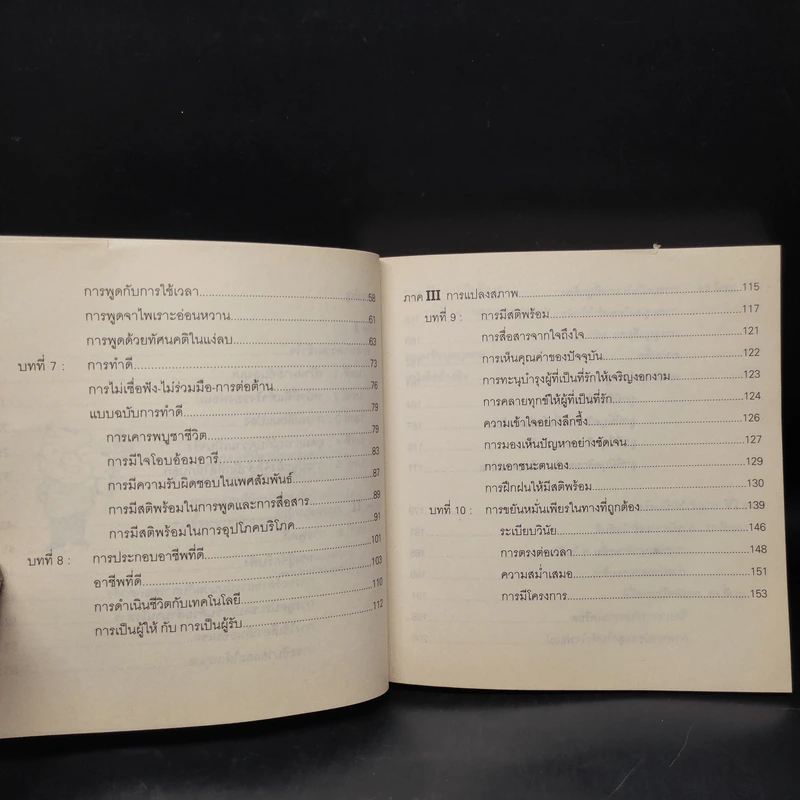 การพูดกับการใช้เวลา 58
การพูดจาไพเราะอ่อนหวาน 61
การพูดด้วยทัศนคติในแง่ลบ 63
บทที่ 7 : การทำดี 73
การไม่เชื่อฟัง-ไม่ร่วมมือ-การต่อต้าน 76
แบบฉบับการทำดี 79
การเคารพบูชาชีวิต 79
การมีใจโอบอ้อมอารี 83
การมีความรับผิดชอบในเพศสัมพันธ์ 87
การมีสติพร้อมในการพูดและการสื่อสาร 89
การมีสติพร้อมในการอุปโภคบริโภค 91
บทที่ 8 : การประกอบอาชีพที่ดี 101
อาชีพที่ดี 103
การดำเนินชีวิตกับเทคโนโลยี 110
การเป็นผู้ให้ กับ การเป็นผู้รับ 112
ภาค III การแปลงสภาพ 115
บทที่ 9 : การมีสติพร้อม 117
การสื่อสารจากใจถึงใจ 121
การเห็นคุณค่าของปัจจุบัน 122
การทะนุบำรุงผู้ที่เป็นที่รักให้เจริญงอกงาม 123
การคลายทุกข์ให้ผู้ที่เป็นที่รัก 124
ความเข้าใจอย่างลึกซึ้ง 126
การมองเห็นปัญหาอย่างชัดเจน 127
การเอาชนะตนเอง 129
การฝึกฝนให้มีสติพร้อม 130
บทที่ 10 : การขยันหมั่นเพียรในทางที่ถูกต้อง 139
ระเบียบวินัย 146
การตรงต่อเวลา 148
ความสม่ำเสมอ 151
การมีโครงการ 153